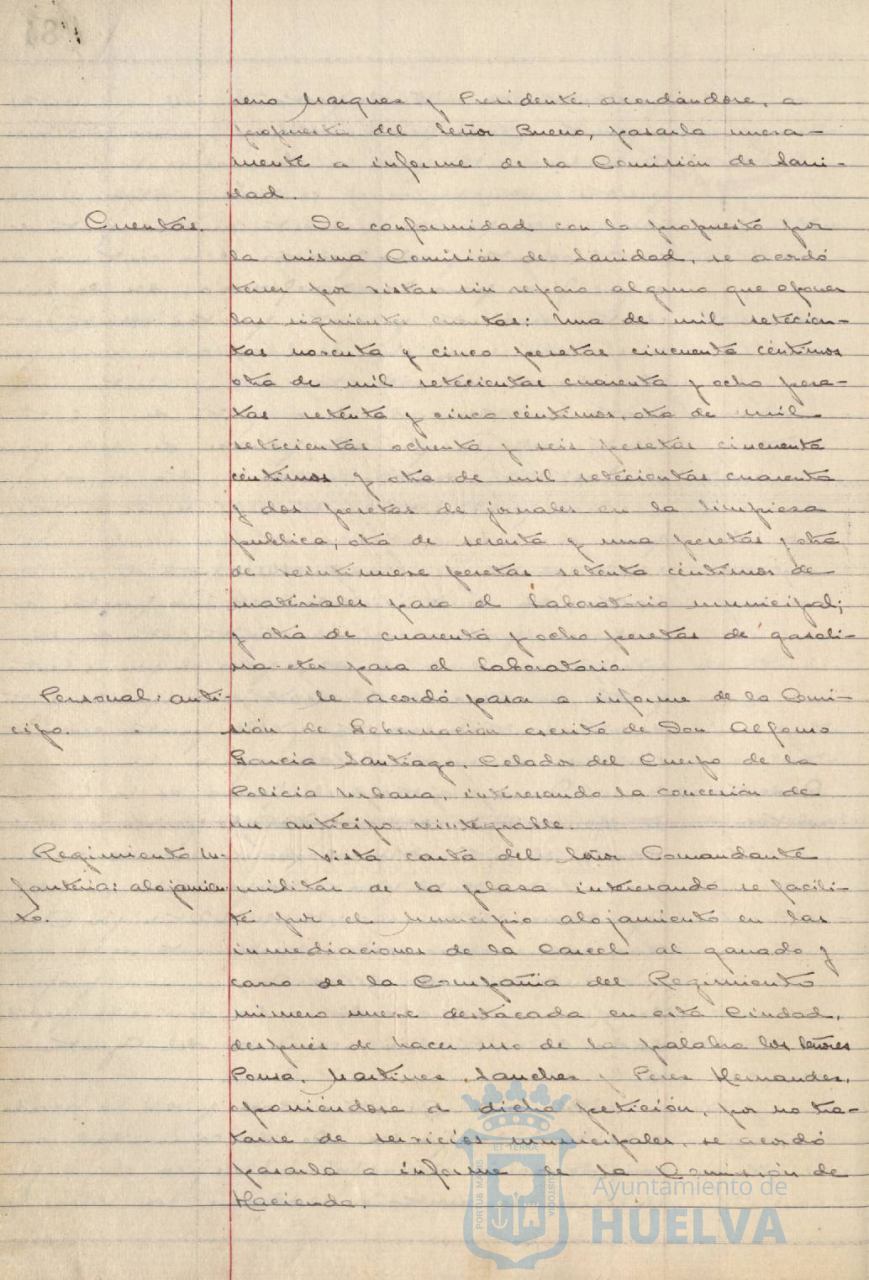 reno Marquez y Presidente, acordándose, a
propuesta del Señor Bueno, pasarla nueva-
mente a informe de la Comisión de Sani-
dad.
Cuentas. De conformidad con lo propuesto por
la misma Comisión de Sanidad, se acordó
tener por vistas sin reparo alguno que oponer
las siguientes cuentas: Una de mil setecien-
tas noventa y cinco pesetas cincuenta céntimos
otra de mil setecientas cuarenta y ocho pese-
tas setenta y cinco céntimos, otra de mil
setecientas ochenta y seis pesetas cincuenta
céntimos y otra de mil setecientas cuarenta
y dos pesetas de jornales en la limpieza
publica; otra de sesenta y una pesetas y otra
de veintinueve pesetas setenta céntimos de
materiales para el Laboratorio municipal;
y otra de cuarenta y ocho pesetas de gasoli-
na para el Laboratorio.
Personal: anti- Se acordó pasar a informe de la Comi-
cipo. sión de Gobernación escrito de Don Alfonso
Garcia Santiago, Celador del Cuerpo de la
Policia Urbana, interesando la concesión de
un anticipo reintegrable.
Regimiento In- Vista carta del Señor Comandante
fanteria: alojamien- militar de la plaza interesando se facili-
to. te por el Municipio alojamiento en las
inmediaciones de la Carcel al ganado y
carro de la Compañia del Regimiento
número nueve destacada en esta Ciudad,
después de hacer uso de la palabra los Señores
Ponsa, Martinez Sanchez y Perez Hernandez,
oponiéndose a dicha petición, por no tra-
tarse de servicios municipales, se acordó
pasarla a informe de la Comisión de
Hacienda.
Ayuntamiento de
HUELVA